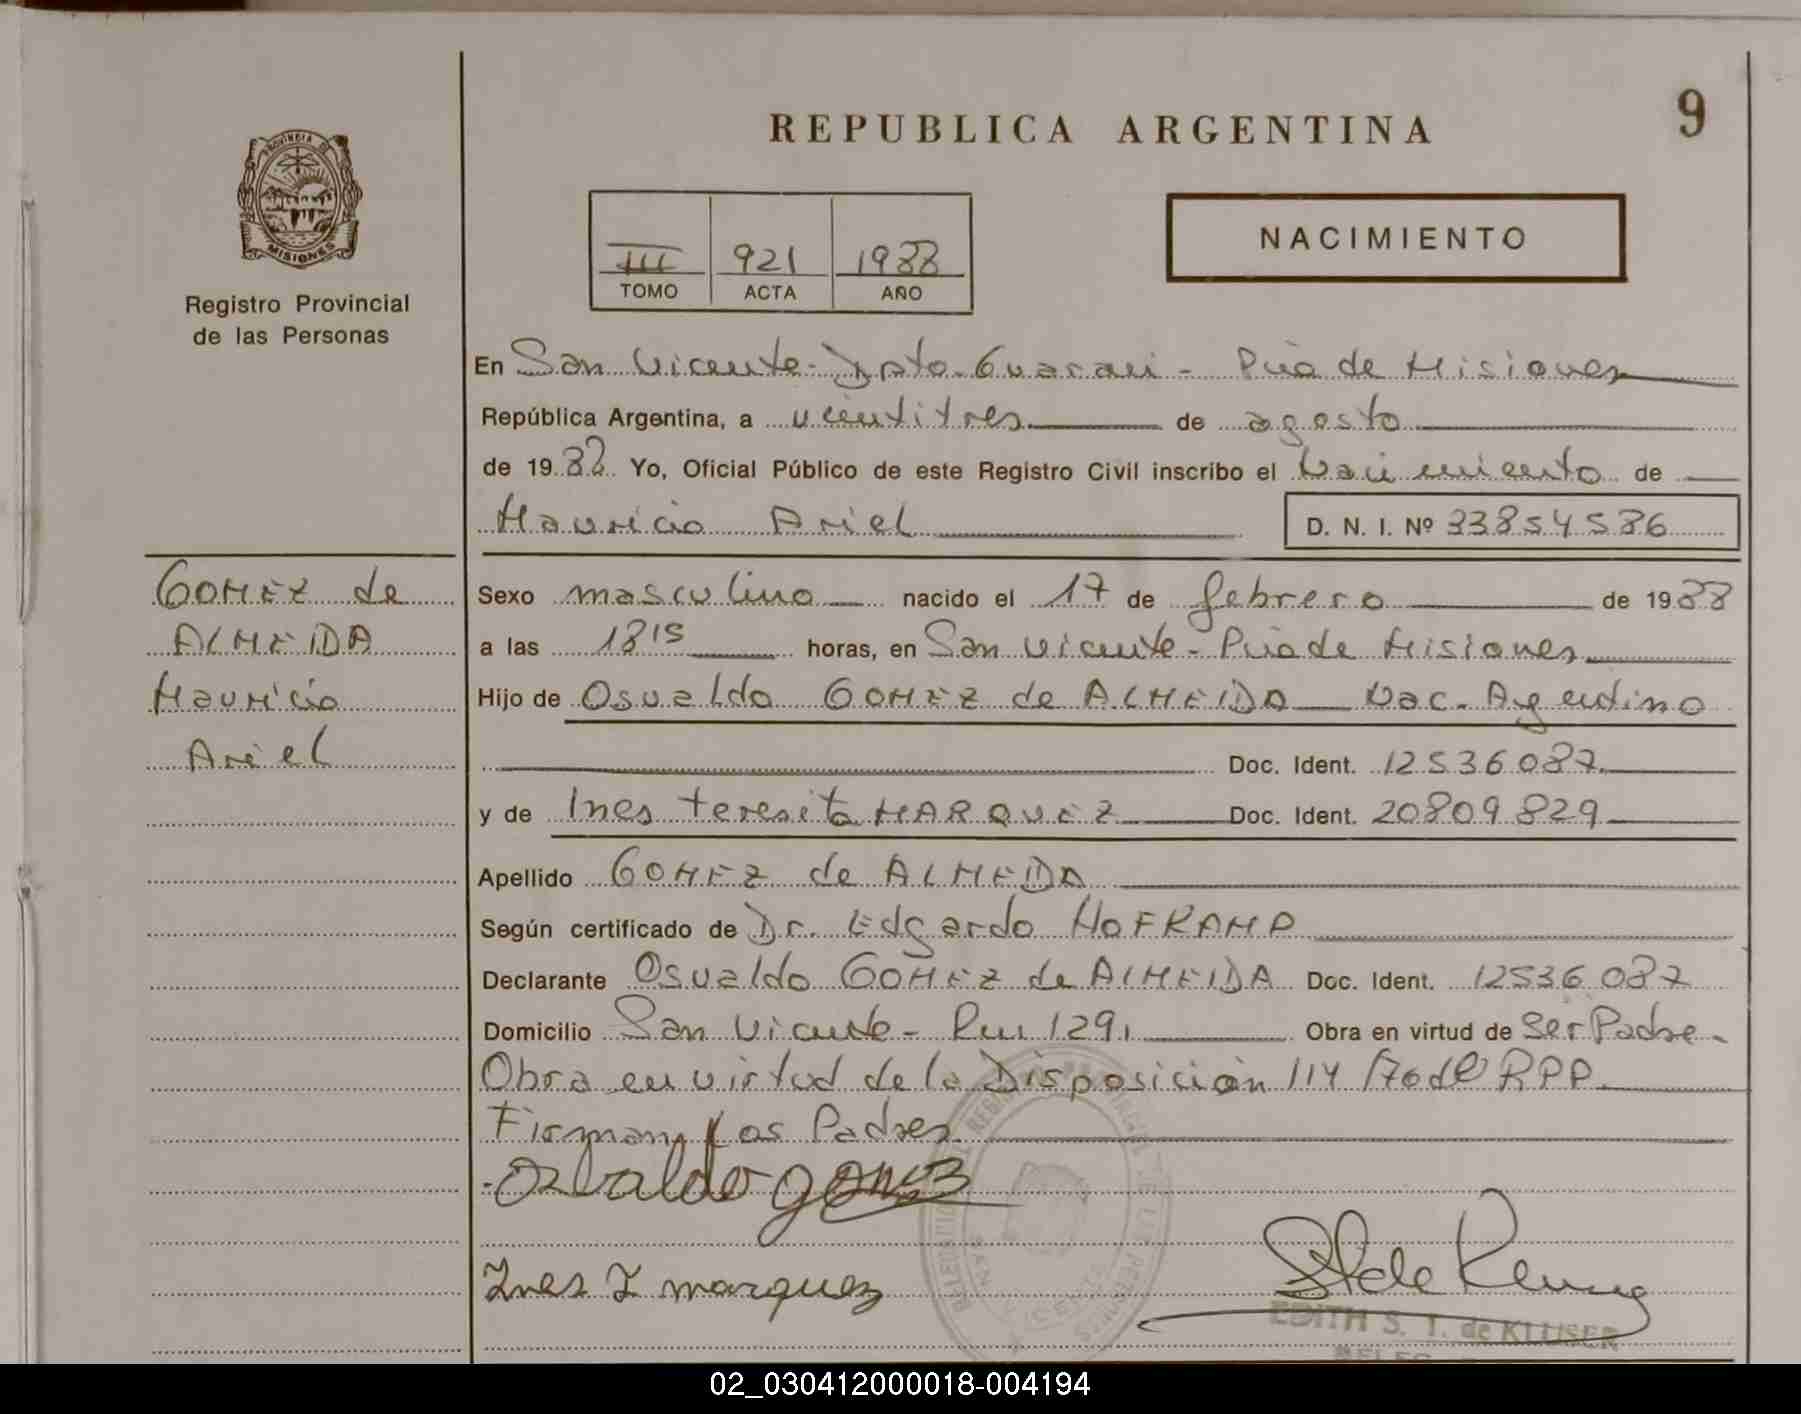 REPUBLICA ARGENTINA
9
PROVINCIA DE
MISIONES
Registro Provincial
de las Personas
III 921 1988
TOMO ACTA AÑO
NACIMIENTO
En San Vicente - Dpto. Guarani - Pcia de Misiones
República Argentina, a veintitres de agosto
de 1988 Yo, Oficial Público de este Registro Civil inscribo el Nacimiento de
Mauricio Ariel D. N. I. Nº 33854586
GOMEZ de
ALMEIDA
Mauricio
Ariel
Sexo masculino nacido el 17 de febrero de 1988
a las 18 15 horas, en San Vicente - Pcia de Misiones
Hijo de Osvaldo GOMEZ de ALMEIDA Nac. Argentino
Doc. Ident. 12536087
y de Ines Teresita MARQUEZ Doc. Ident. 20809829
Apellido GOMEZ de ALMEIDA
Según certificado de Dr. Edgardo HOFKAMP
Declarante Osvaldo GOMEZ de ALMEIDA Doc. Ident. 12536087
Domicilio San Vicente - Km 1291 Obra en virtud de Ser Padre -
Obra en virtud de la Disposición 114/76 del RPP
Firman Los Padres
Osbaldo gomes
Ines T marquez
EDITH S. T. de KLUSER
02_030412000018-004194